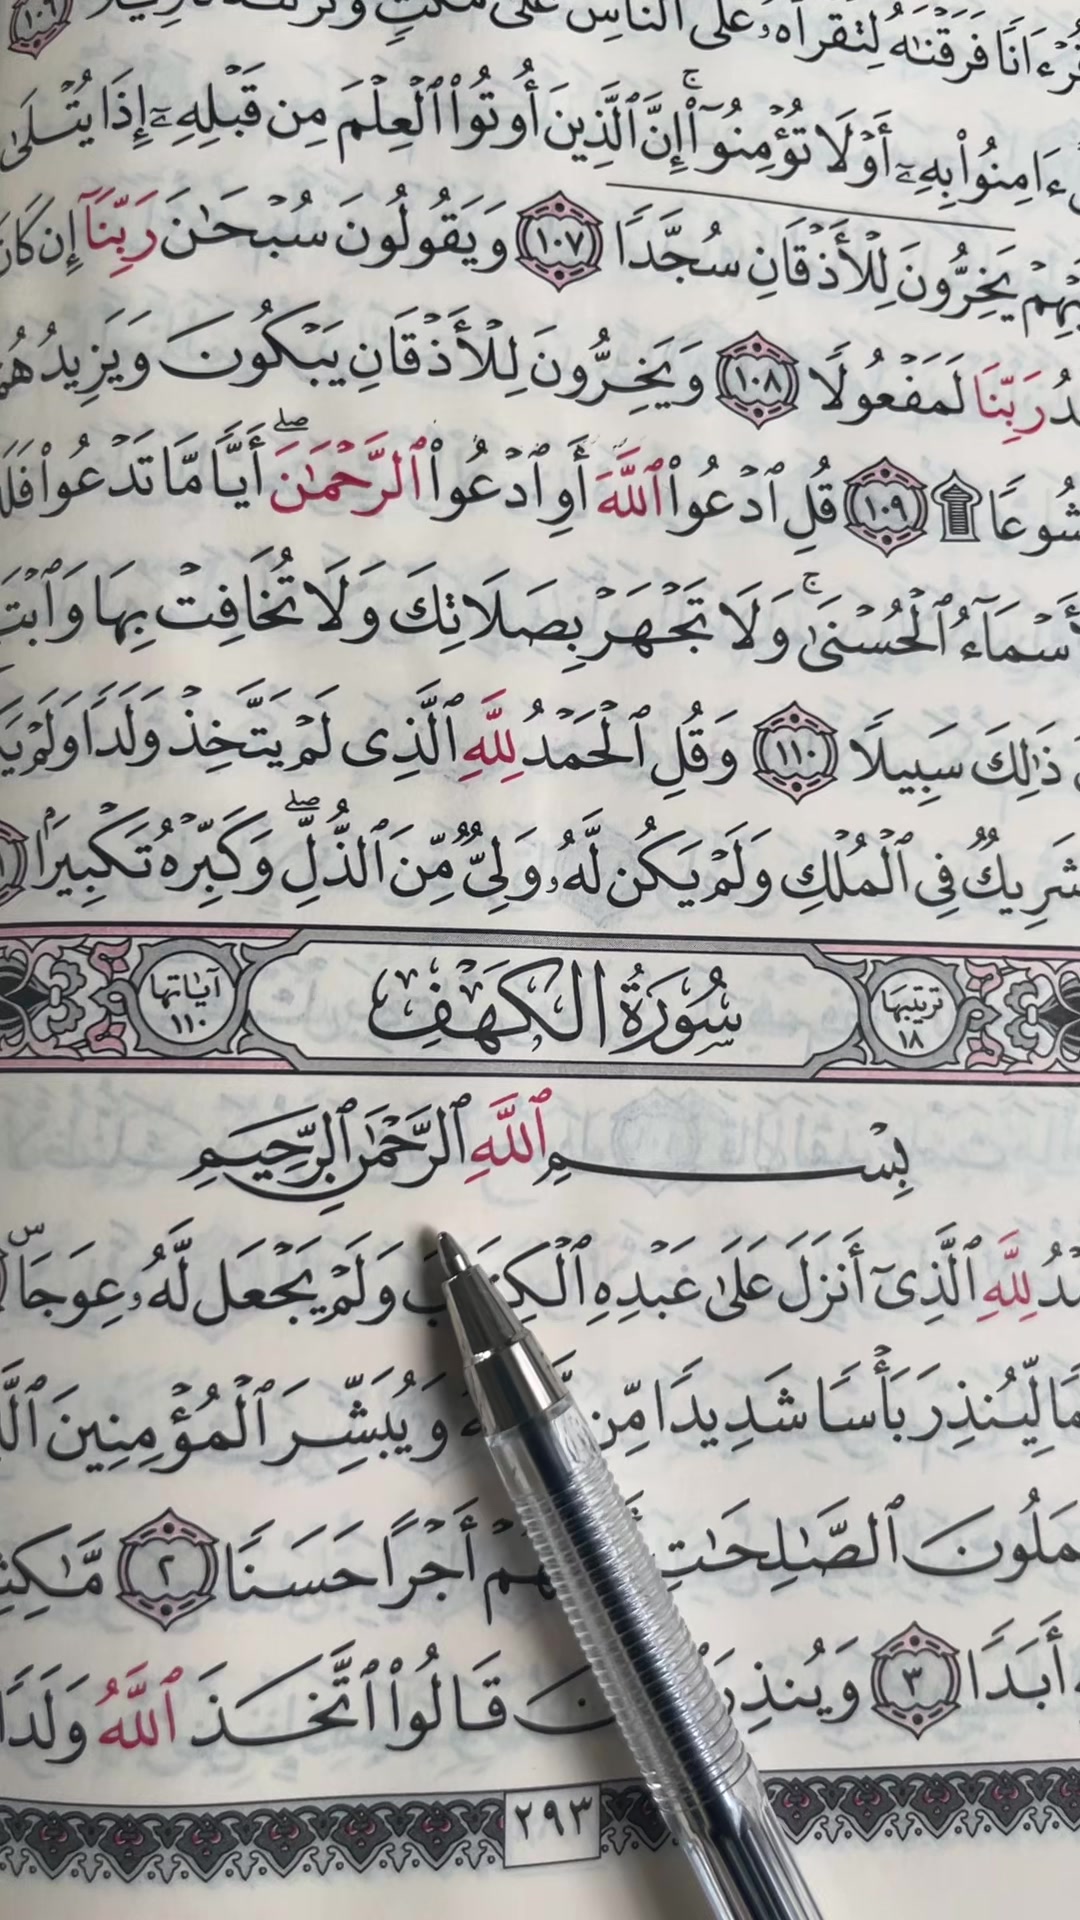 فَرَقْنَٰهُ لِتَقْرَأَهُۥ عَلَى ٱلنَّاسِ عَلَىٰ مُكْثٍ ١٠٦
ءَامِنُوا۟ بِهِۦٓ أَوْ لَا تُؤْمِنُوٓا۟ ۚ إِنَّ ٱلَّذِينَ أُوتُوا۟ ٱلْعِلْمَ مِن قَبْلِهِۦٓ إِذَا يُتْلَىٰ
يَخِرُّونَ لِلْأَذْقَانِ سُجَّدًا ١٠٧ وَيَقُولُونَ سُبْحَٰنَ رَبِّنَآ إِن كَانَ
رَبِّنَا لَمَفْعُولًا ١٠٨ وَيَخِرُّونَ لِلْأَذْقَانِ يَبْكُونَ وَيَزِيدُهُمْ
شُوعًا ۩ ١٠٩ قُلِ ٱدْعُوا۟ ٱللَّهَ أَوِ ٱدْعُوا۟ ٱلرَّحْمَٰنَ ۖ أَيًّا مَّا تَدْعُوا۟ فَلَ
أَسْمَآءُ ٱلْحُسْنَىٰ ۚ وَلَا تَجْهَرْ بِصَلَاتِكَ وَلَا تُخَافِتْ بِهَا وَٱبْتَ
ذَٰلِكَ سَبِيلًا ١١٠ وَقُلِ ٱلْحَمْدُ لِلَّهِ ٱلَّذِى لَمْ يَتَّخِذْ وَلَدًا وَلَمْ يَ
شَرِيكٌ فِى ٱلْمُلْكِ وَلَمْ يَكُن لَّهُۥ وَلِىٌّ مِّنَ ٱلذُّلِّ ۖ وَكَبِّرْهُ تَكْبِيرًۢا
ترتيبها ١٨ سُورَةُ الكَهْفِ آياتها ١١٠
بِسْمِ ٱللَّهِ ٱلرَّحْمَٰنِ ٱلرَّحِيمِ
دُ لِلَّهِ ٱلَّذِىٓ أَنزَلَ عَلَىٰ عَبْدِهِ ٱلْكِتَٰبَ وَلَمْ يَجْعَل لَّهُۥ عِوَجَا ۜ
مًا لِّيُنذِرَ بَأْسًا شَدِيدًا مِّن وَيُبَشِّرَ ٱلْمُؤْمِنِينَ ٱلَّ
مَلُونَ ٱلصَّٰلِحَٰتِ أَجْرًا حَسَنًا ٢ مَّٰكِثِ
أَبَدًا ٣ وَيُنذِرَ قَالُوا۟ ٱتَّخَذَ ٱللَّهُ وَلَدًا
٢٩٣